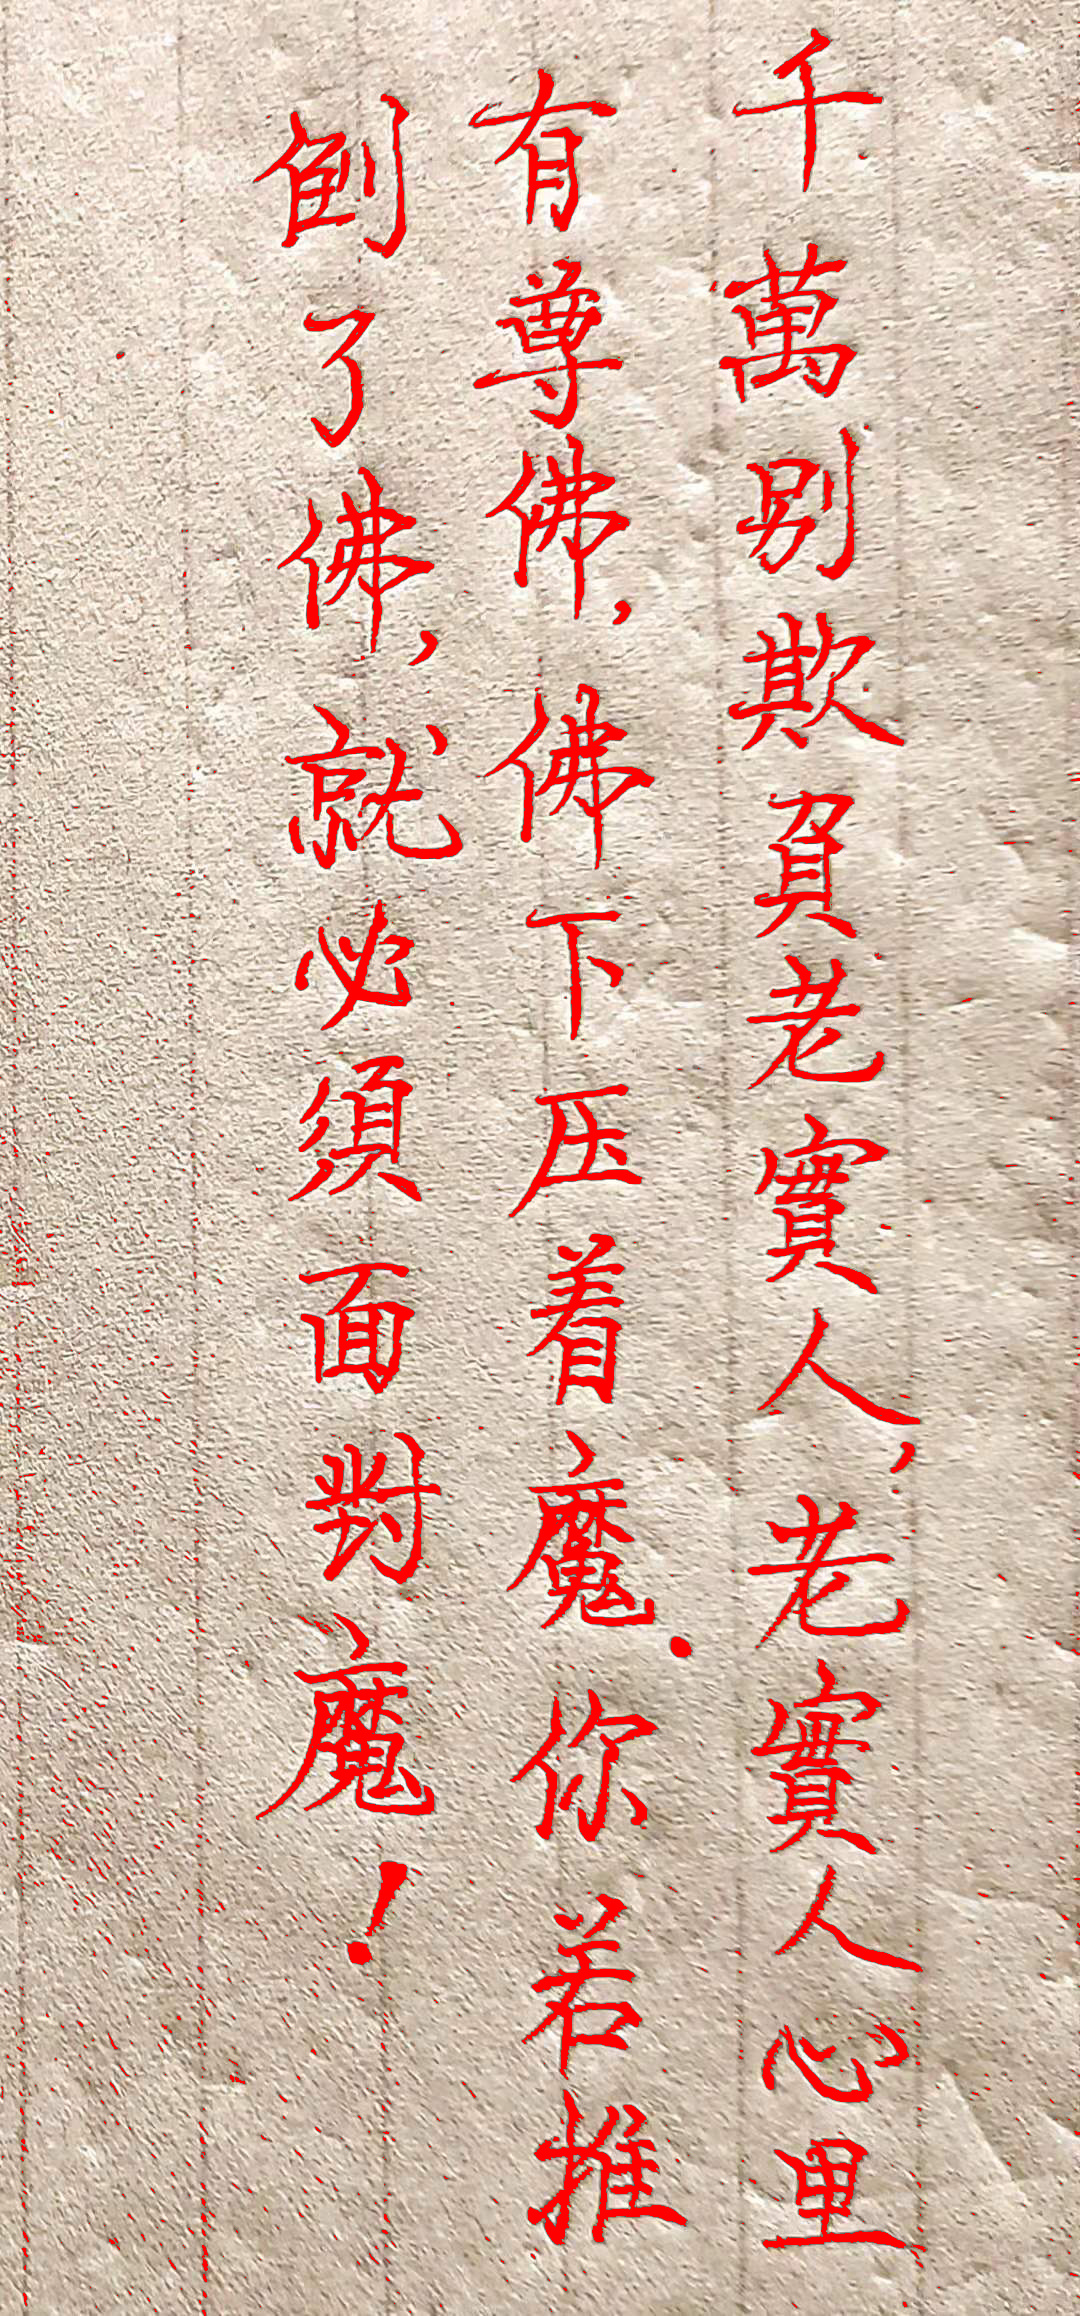 千萬别欺負老實人,老實人心里
有尊佛,佛下压着魔.你若推
倒了佛,就必須面對魔!